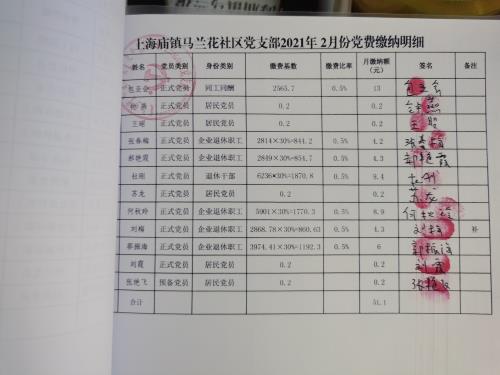 上海庙镇马兰花社区党支部2021年2月份党费缴纳明细
姓名 党员类别 身份类别 缴费基数 缴费比率 月缴纳额（元） 签名 备注
正式党员 同工同酬 2565.7 0.5% 13
正式党员 居民党员 0.2 0.2
王 正式党员 居民党员 0.2 0.2
张春梅 正式党员 企业退休职工 2814×30%=844.2 0.5% 4.2 张春梅
郝艳霞 正式党员 企业退休职工 2849×30%=854.7 0.5% 4.3 郝艳霞
杜刚 正式党员 退休干部 6236×30%=1870.8 0.5% 9.4 杜刚
苏龙 正式党员 居民党员 0.2 0.2 苏龙
何秋玲 正式党员 企业退休职工 5901×30%=1770.3 0.5% 8.9 何秋玲
刘梅 正式党员 企业退休职工 2868.78×30%=860.63 0.5% 4.3 刘梅 补
郭振海 正式党员 企业退休职工 3974.41×30%=1192.3 0.5% 6 郭振海
刘霞 正式党员 居民党员 0.2 0.2 刘霞
张艳飞 预备党员 居民党员 0.2 0.2 张艳飞
合计 51.1